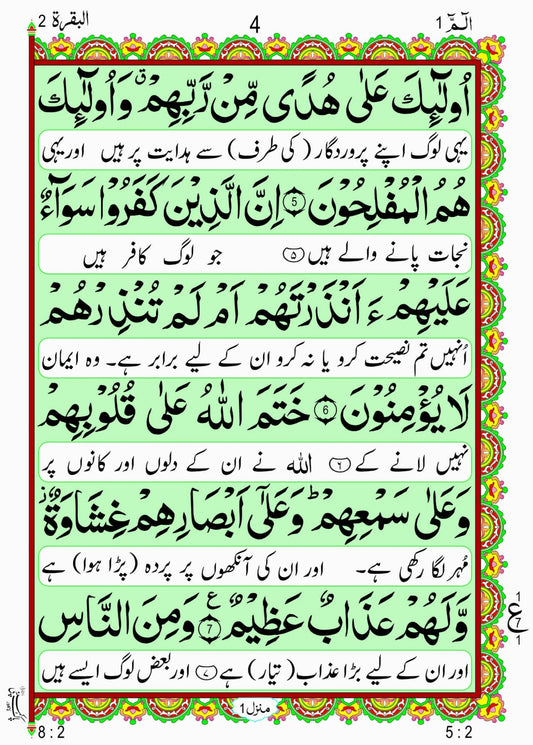 الٓمّٓ 1
4
البقرة 2
اُولٰٓئِكَ عَلٰى هُدًى مِّنْ رَّبِّهِمْ ۗ وَاُولٰٓئِكَ
یہی لوگ اپنے پروردگار (کی طرف) سے ہدایت پر ہیں اور یہی
هُمُ الْمُفْلِحُوْنَ 5 اِنَّ الَّذِيْنَ كَفَرُوْا سَوَآءٌ
نجات پانے والے ہیں ۵ جو لوگ کافر ہیں
عَلَيْهِمْ ءَاَنْذَرْتَهُمْ اَمْ لَمْ تُنْذِرْهُمْ
اُنہیں تم نصیحت کرو یا نہ کرو ان کے لیے برابر ہے۔ وہ ایمان
لَا يُؤْمِنُوْنَ 6 خَتَمَ اللّٰهُ عَلٰى قُلُوْبِهِمْ
نہیں لانے کے ۶ اللہ نے ان کے دلوں اور کانوں پر
وَعَلٰى سَمْعِهِمْ ؕ وَعَلٰٓى اَبْصَارِهِمْ غِشَاوَةٌ ۫
مُہر لگا رکھی ہے۔ اور ان کی آنکھوں پر پردہ (پڑا ہوا) ہے
وَّلَهُمْ عَذَابٌ عَظِيْمٌ 7 ع وَمِنَ النَّاسِ
1
ع
7
1
اور ان کے لیے بڑا عذاب (تیار) ہے ۷ اور بعض لوگ ایسے ہیں
منزل 1
8:2
5:2